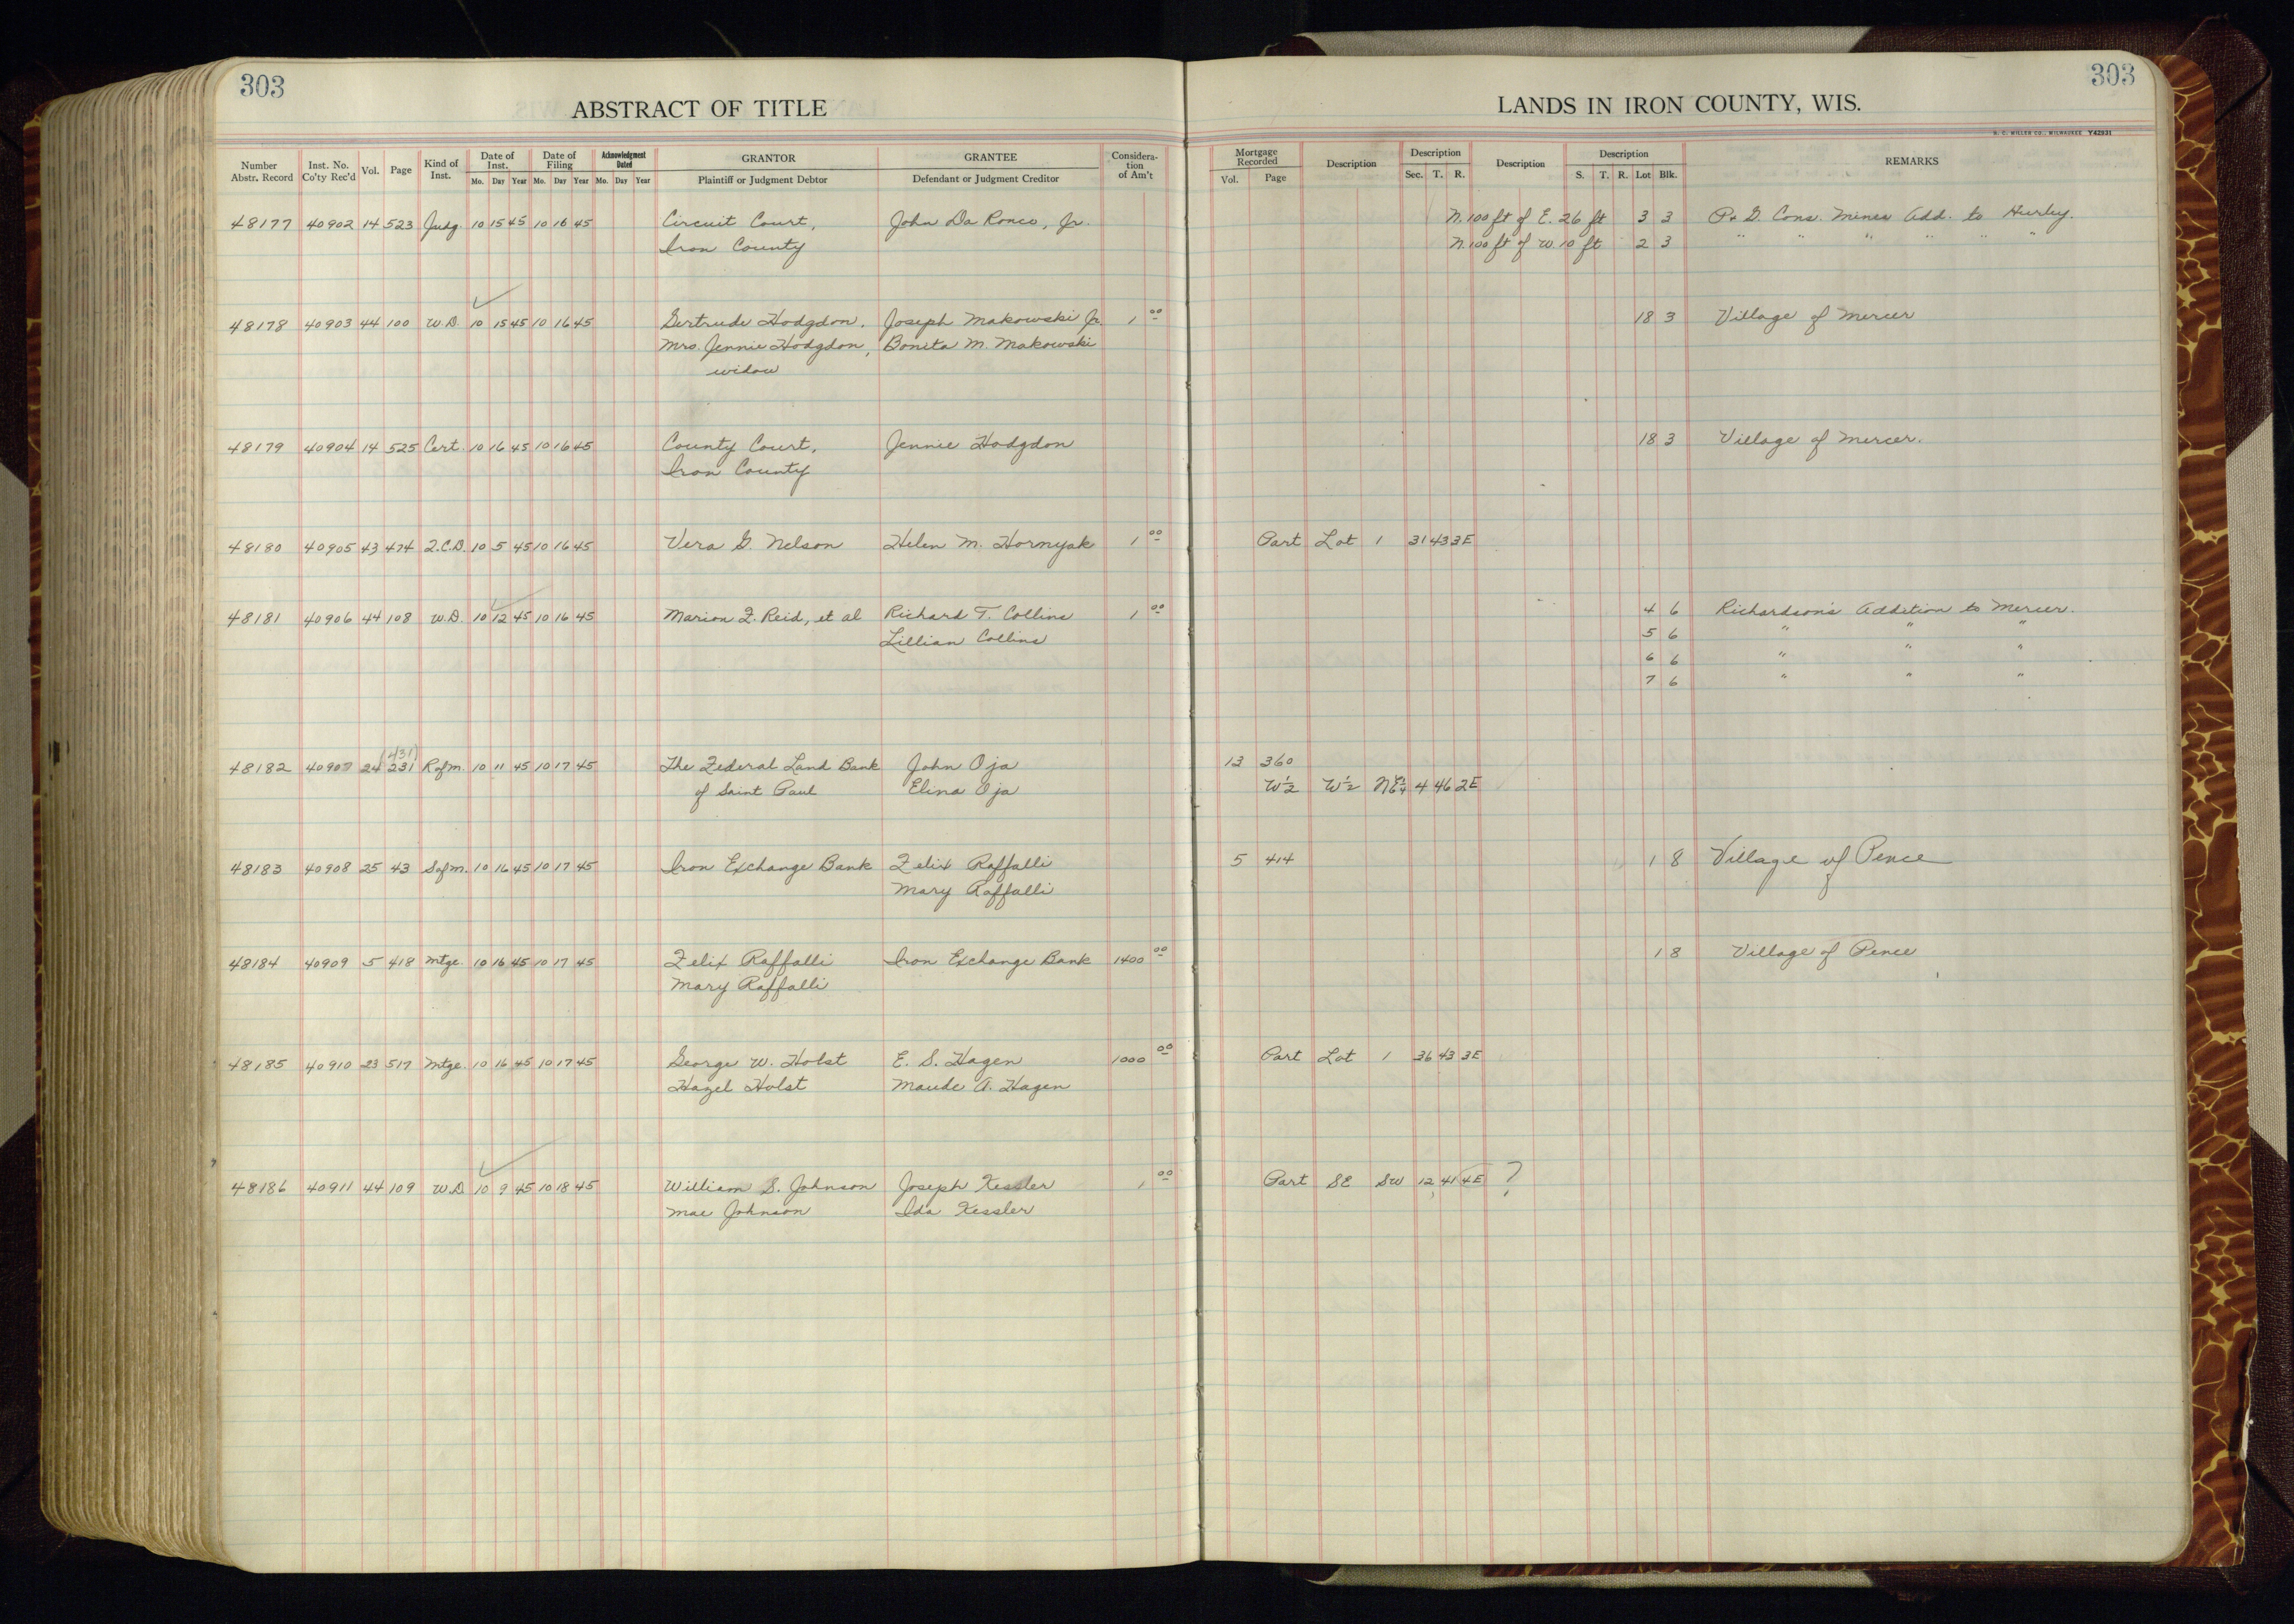 303
303
ABSTRACT OF TITLE
LANDS IN IRON COUNTY, WIS.
H. C. MILLER CO., MILWAUKEE Y42831
Number Abstr. Record Inst. No. Co'ty Rec'd Vol. Page Kind of Inst. Date of Inst. Mo. Day Year Date of Filing Mo. Day Year Acknowledgment Dated Mo. Day Year GRANTOR Plaintiff or Judgment Debtor GRANTEE Defendant or Judgment Creditor Considera-tion of Am't Mortgage Recorded Vol. Page Description Description Sec. T. R. Description Description S. T. R. Lot Blk. REMARKS
48177 40902 14 523 Judg. 10 15 45 10 16 45 Circuit Court, John Da Ronco, Jr. N. 100 ft of E. 26 ft 3 3 P. & G. Cons. Mines Add. to Hurley.
Iron County N. 100 ft of W. 10 ft 2 3 " " " " " "
48178 40903 44 100 W.D. 10 15 45 10 16 45 Gertrude Hodgdon, Joseph Makowski Jr. 1 00 18 3 Village of Mercer
Mrs. Jennie Hodgdon, Bonita M. Makowski
widow
48179 40904 14 525 Cert. 10 16 45 10 16 45 County Court, Jennie Hodgdon 18 3 Village of Mercer.
Iron County
48180 40905 43 474 Q.C.D. 10 5 45 10 16 45 Vera G. Nelson Helen M. Hornyak 1 00 Part Lot 1 31 43 3E
48181 40906 44 108 W.D. 10 12 45 10 16 45 Marion F. Reid, et al Richard T. Collins 1 00 4 6 Richardson's Addition to Mercer.
Lillian Collins 5 6 " " "
6 6 " " "
7 6 " " "
(431)
48182 40907 24 231 Rofm. 10 11 45 10 17 45 The Federal Land Bank John Oja 13 360
of Saint Paul Elina Oja W½ W½ 4 46 2E
48183 40908 25 43 Sofm. 10 16 45 10 17 45 Iron Exchange Bank Felix Raffalli 5 414 1 8 Village of Pence
Mary Raffalli
48184 40909 5 418 Mtge. 10 16 45 10 17 45 Felix Raffalli Iron Exchange Bank 1400 00 1 8 Village of Pence
Mary Raffalli
48185 40910 23 517 Mtge. 10 16 45 10 17 45 George W. Holst E. S. Hagen 1000 00 Part Lot 1 36 43 3E
Hazel Holst Maude A. Hagen
48186 40911 44 109 W.D. 10 9 45 10 18 45 William S. Johnson Joseph Kessler 1 00 Part SE SW 12 41 4E ?
Mae Johnson Ida Kessler